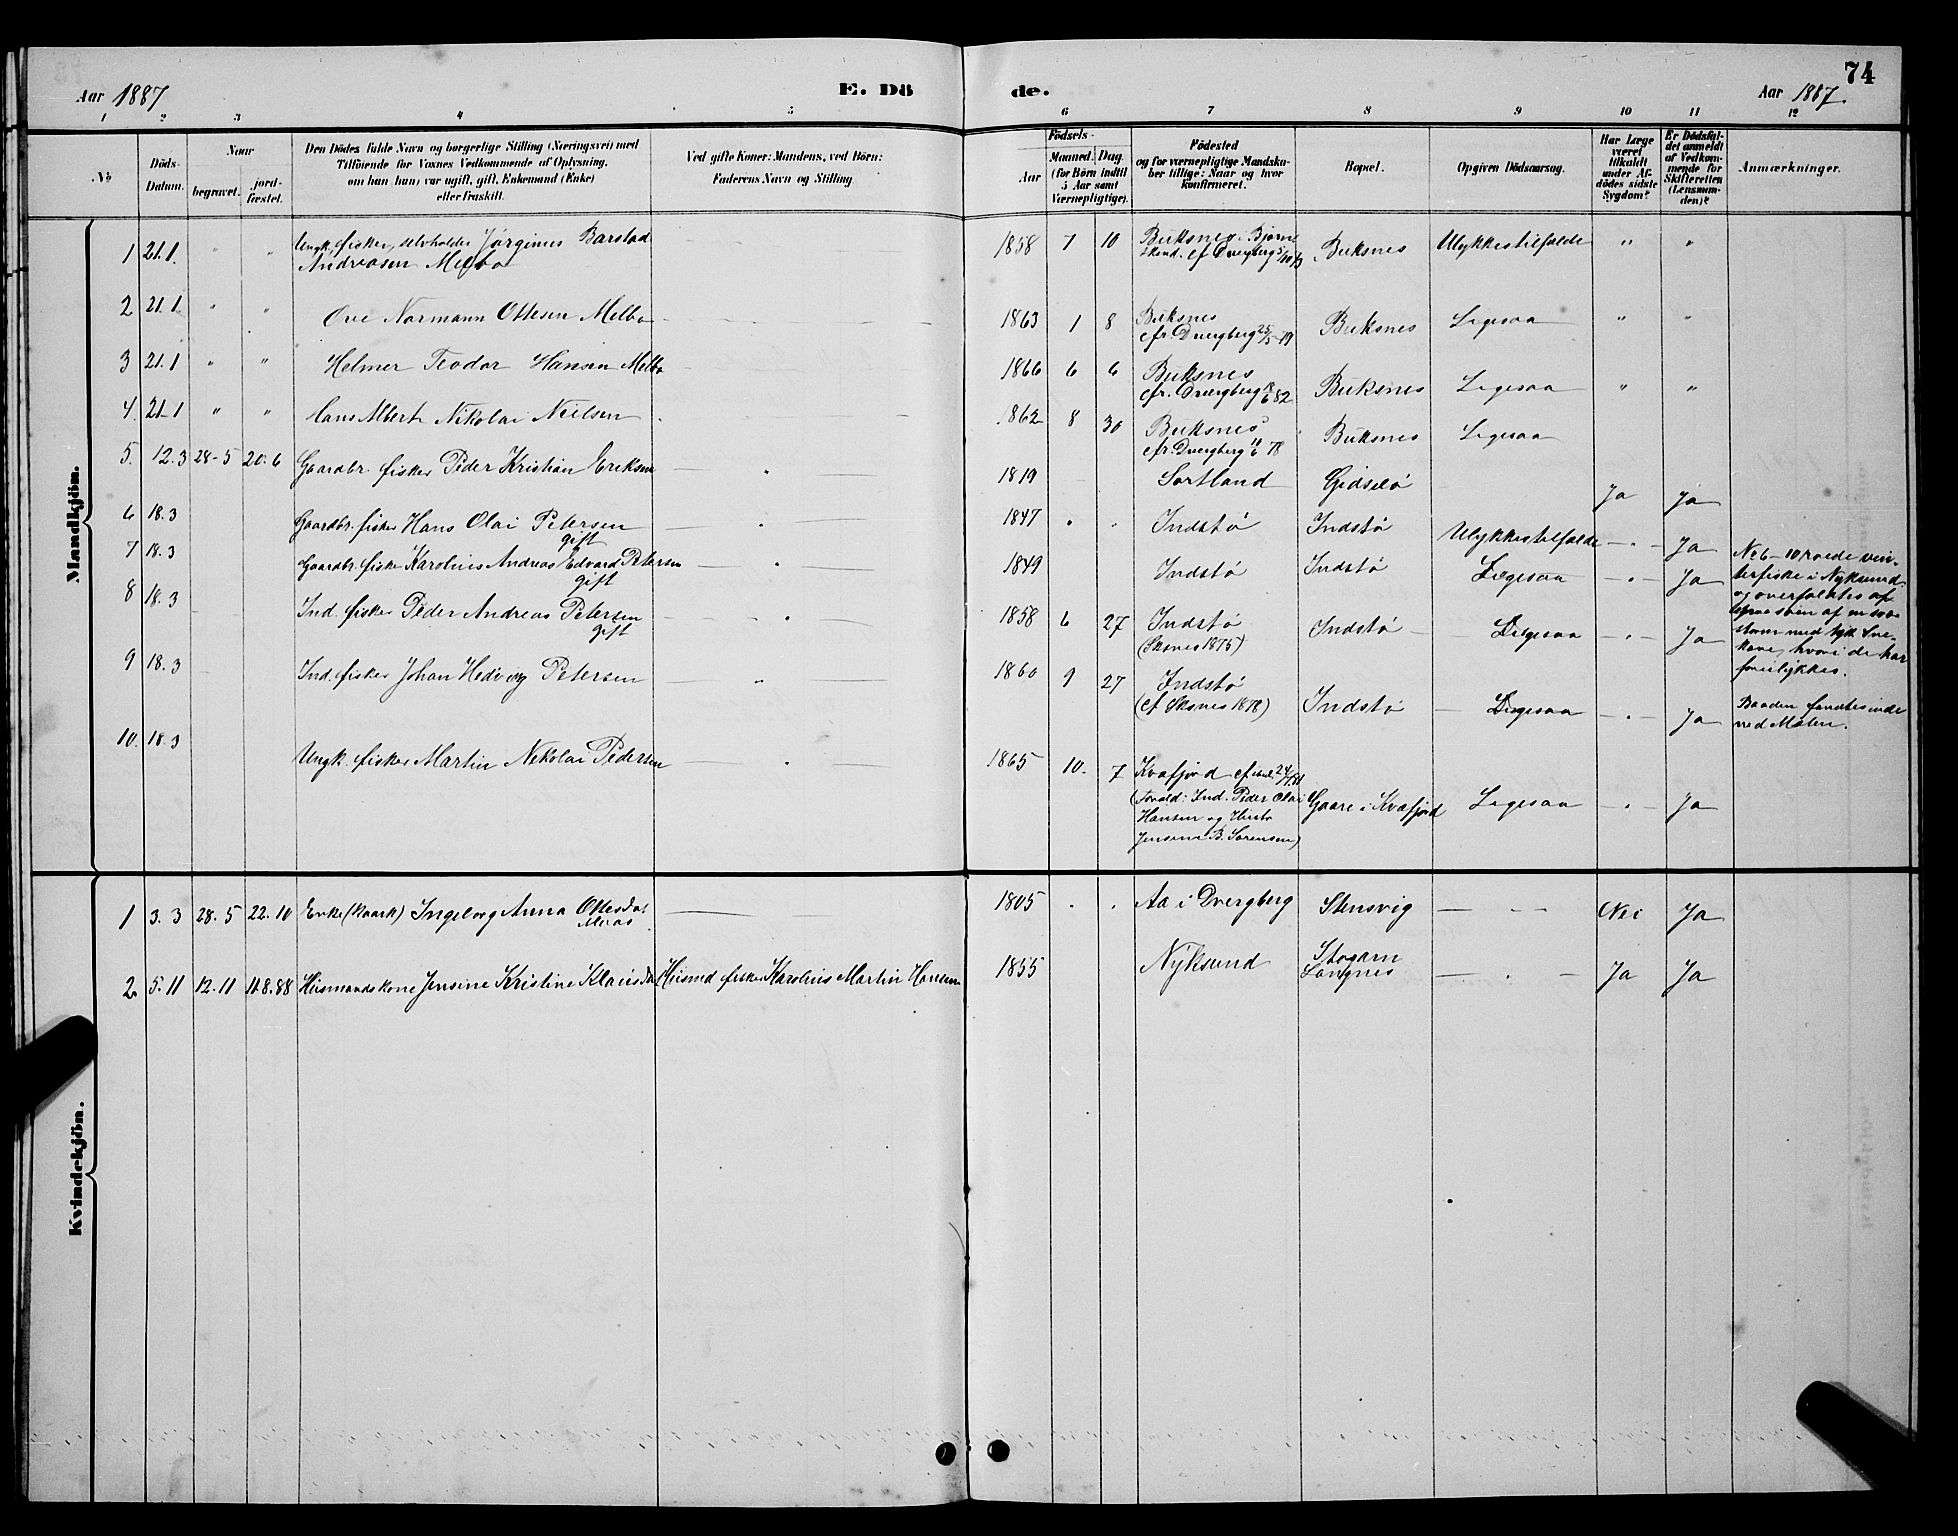 74
Aar 1887
E. Dö
de.
Aar 1887.
1 2 3 4 5 6 7 8 9 10 11 12
No
Döds-
Datum.
Naar
begravet.
jord-
fæstet.
Den Dödes fulde Navn og borgerlige Stilling (Næringsvei) med
Tilföiende for Voxnes Vedkommende af Oplysning,
om han (hun) var ugift, gift, Enkemand (Enke)
eller fraskilt.
Ved gifte Koner: Mandens, ved Börn:
Faderens Navn og Stilling
Födsels-
Aar
Maaned.
Dag
(for Börn indtil
5 Aar samt
Værnepligtige).
Födested
og for værnepligtige Mandska-
ber tillige: Naar og hvor
konfirmeret.
Bopæl.
Opgiven Dödsaarsag.
Har Læge
været
tilkaldt
under Af-
dödes sidste
Sygdom?
Er Dödsfal-
det anmeldt
af Vedkom-
mende for
Skifteretten
(Lensman-
den)?
Anmærkninger.
Mandkjön.
1 21.1. " Ungk. fisker, selvholder Jørginus Barstad
Andreasen Melbo
1858 7 10 Buksnes i Bjørn
skind. cf Dvergberg Buksnes Ulykkestilfælde " "
2 21.1 " " Ove Normann Ottesen Melbo
1863 1 8 Buksnes
cfr. Dvergberg 25/5 79 Buksnes Ligesaa " "
3 21.1 " " Helmer Teodor Hansen Melbo
1866 6 6 Buksnes
cfr. Dvergberg 82 Buksnes Ligesaa " "
4. 21.1 " " Hans Albert Nikolai Neilsen
1862 8 30 Buksnes
cfr. Dvergberg 78 Buksnes Ligesaa
5. 12.3 28-5 20.6 Gaardbr. fisker Peder Kristian Eriksen
1819 Sortland Gidselø Ja Ja
6 18.3 Gaardbr. fisker Hans Olai Petersen
gift
1847 Indstø Indstø Ulykkestilfælde Ja
7 18.3 Gaardbr. fisker Karolius Andreas Edvard Petersen
gift
1849 Indstø Indstø Ligesaa Ja
8 18.3 Ind. fisker Peder Andreas Petersen
gift
1858 6 27 Indstø
(Øksnes 1875) Indstø Ligesaa Ja
9 18.3 Ind. fisker Johan Hedivig Petersen
1860 9 27 Indstø
(cf Øksnes 1878) Indstø Ligesaa Ja
No 6-10 roede vin-
terfiske i Nyksund
og overfaldtes af
storm med tyk Sne-
kave, hvori de har
forulykkes.
Baaden fandtes inde
ved Malen.
10. 18.3 Ungk. fisker Martin Nikolai Pedersen
1865 10. 7 Kvæfjord
(Foræld: Ind. Peder Olai
Hansen og Hustr
Jensine B. Sørensen)
Gaare i Kvæfjord Ligesaa Ja
Kvindekjön.
1 3.3 28.5 22.10 Enke (Kaark) Ingeborg Anna Ottesdat
1805 Aa i Dvergberg Stensvig Nei Ja
2. 5.11 12.11 11.8.88 Husmandskone Jensine Kristine Klausdat Husmd fisker Karolius Martin Hansen
1855 Nyksund Langnes Ja Ja